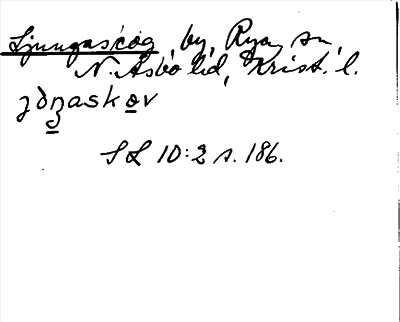 Ljungaskog, by, Rya sn,
N. Åsbo hd, Krist. l.
SL 10:2 s. 186.